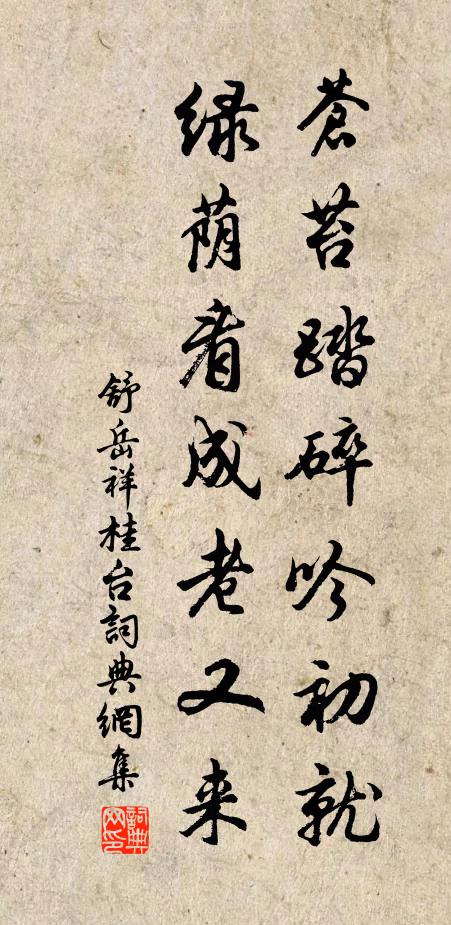 蒼苔踏碎吟初就
绿荫看成老又来
舒岳祥桂台詞典網集
詞典网印